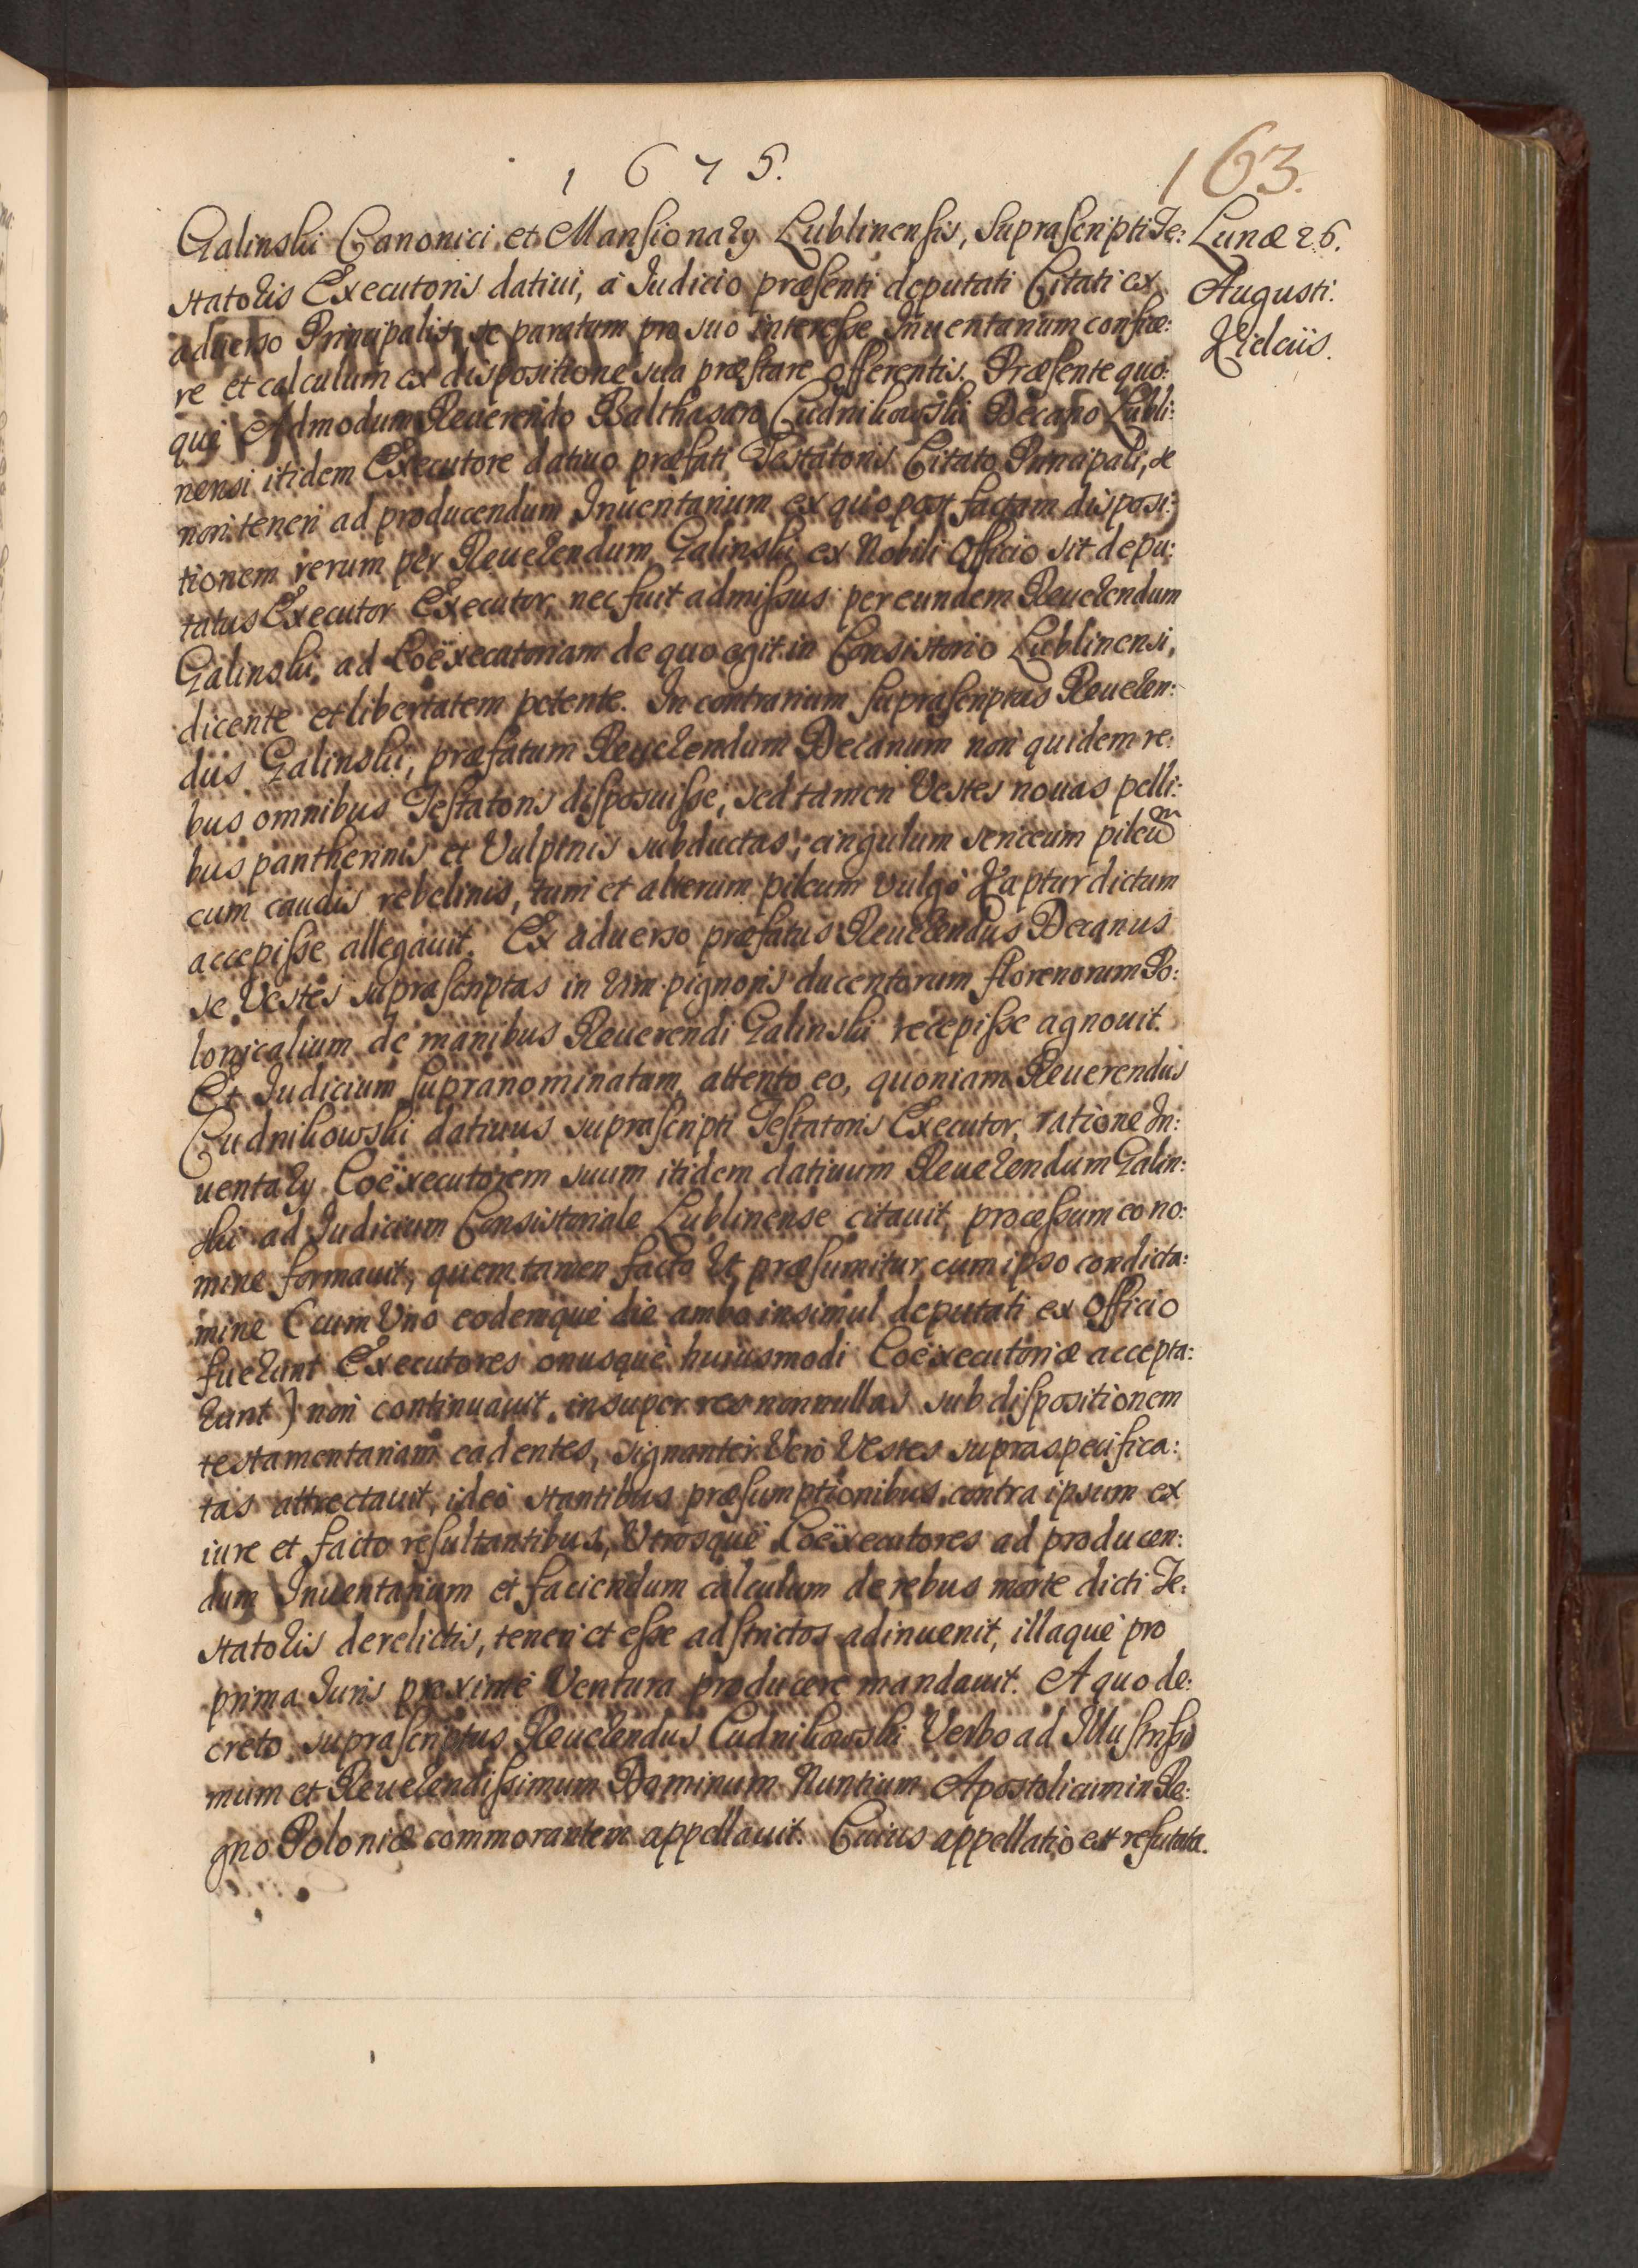 1675.
163.
Galinski Canonici et Mansionarÿ Lublinensis, suprascripti Te:
statoris Executoris dativi, à Iudicio præsenti deputati Citati ex
adverso Principalis, se paratum pro suo interesse Inventarium confice:
re et calculum ex dispositione sua præstare offerentis. Præsente quo:
què Admodum Reverendo Balthasaro Cudnikowski Decano Lubli:
nensi itidem Executore dativo præfati Testatoris Citato Principali, se
non teneri ad producendum Inventarium ex quo post factam disposi:
tionem rerum per Reverendum Galinski ex Nobili Officio sit depu:
tatus Executor Executor, nec fuit admissus per eundem Reverendum
Galinski, ad Coëxecutoriam de quo egit in Consistorio Lublinensi,
dicente et libertatem petente. In contrarium suprascriptus Reveren:
dus Galinski, præfatum Reverendum Decanum non quidem re:
bus omnibus Testatoris disposuisse, sed tamen Vestes novas pelli:
bus pantherinis et Vulpinis subductas, cingulum sericeum pileum
cum caudis zebelinis, tum et alterum pileum vulgò Kaptur dictum
accepisse allegavit. Ex adverso præfatus Reverendus Decanus
se Vestes suprascriptas in Vim pignoris ducentorum florenorum Po:
lonicalium de manibus Reverendi Galinski recepisse agnovit.
Et Iudicium supranominatum, attento eo, quoniam Reverendus
Cudnikowski dativus suprascripti Testatoris Executor, ratione In:
ventarÿ Coëxecutorem suum itidem dativum Reverendum Galin:
ski ad Iudicium Consistoriale Lublinense citavit, processum eo no:
mine formavit, quem tamen facto Ut præsumitur cum ipso condicta:
mine (cum Uno eodemquè die ambo insimul deputati ex Officio
fuerunt Executores onusquè huiusmodi Coëxecutoriæ accepta:
runt) non continuavit, insuper res nonnullas sub dispositionem
testamentariam cadentes, signanter Verò Vestes supraspecifica:
tas attrectavit, ideò stantibus præsumptionibus contra ipsum ex
iure et facto resultantibus, Utrosquè Coëxecutores ad producen:
dum Inventarium et faciendum calculum de rebus morte dicti Te:
statoris derelictis, teneri et esse adstrictos adinvenit, illaquè pro
prima Iuris proximè Ventura producere mandavit. A quo de:
creto suprascriptus Reverendus Cudnikowski Verbo ad Illustrissi
mum et Reverendissimum Dominum Nuntium Apostolicum in Re:
gno Poloniæ commorantem appellavit. Cuius appellatio est refutata.
Lunæ 26.
Augusti.
Kielciis.